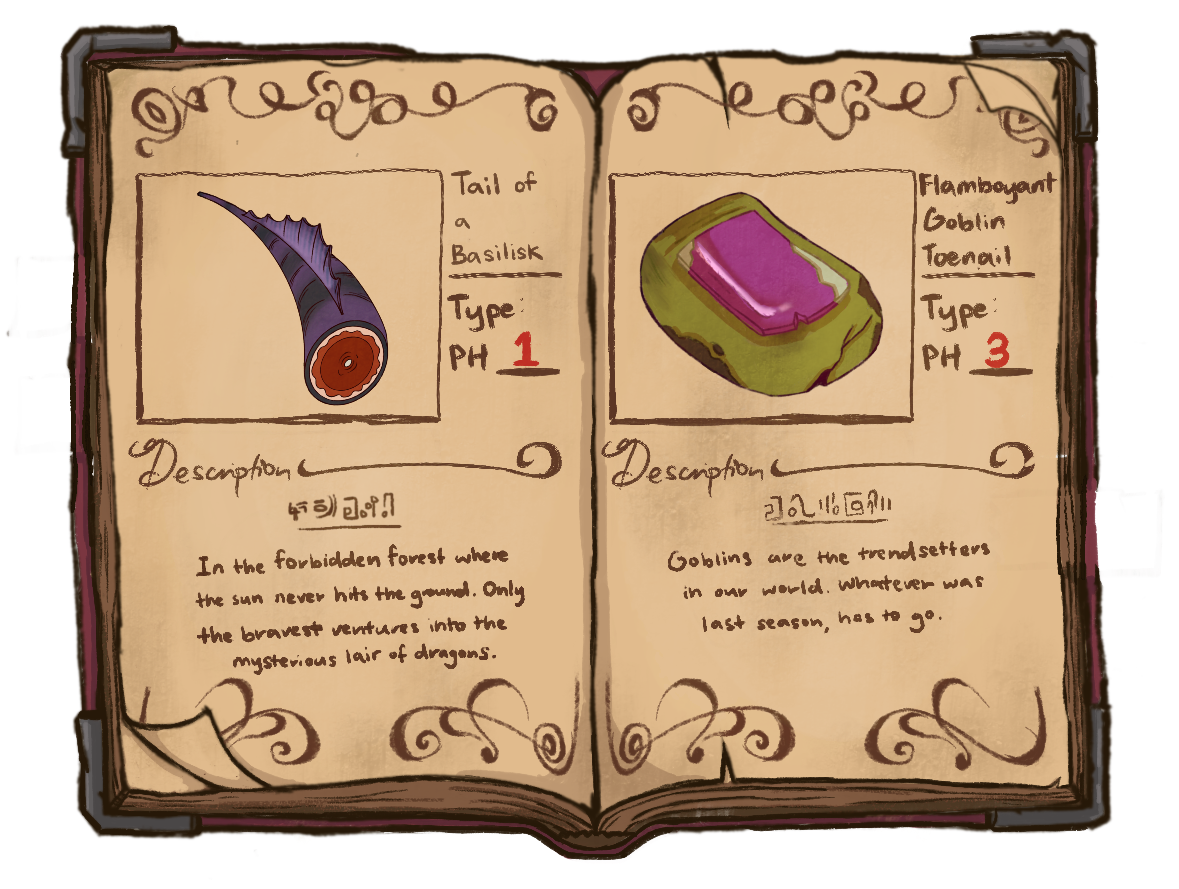 Tail of
a
Basilisk
Type:
PH 1
Description
In the forbidden forest where
the sun never hits the ground. Only
the bravest ventures into the
mysterious lair of dragons.
Flamboyant
Goblin
Toenail
Type:
PH 3
Description
Goblins are the trendsetters
in our world. Whatever was
last season, has to go.